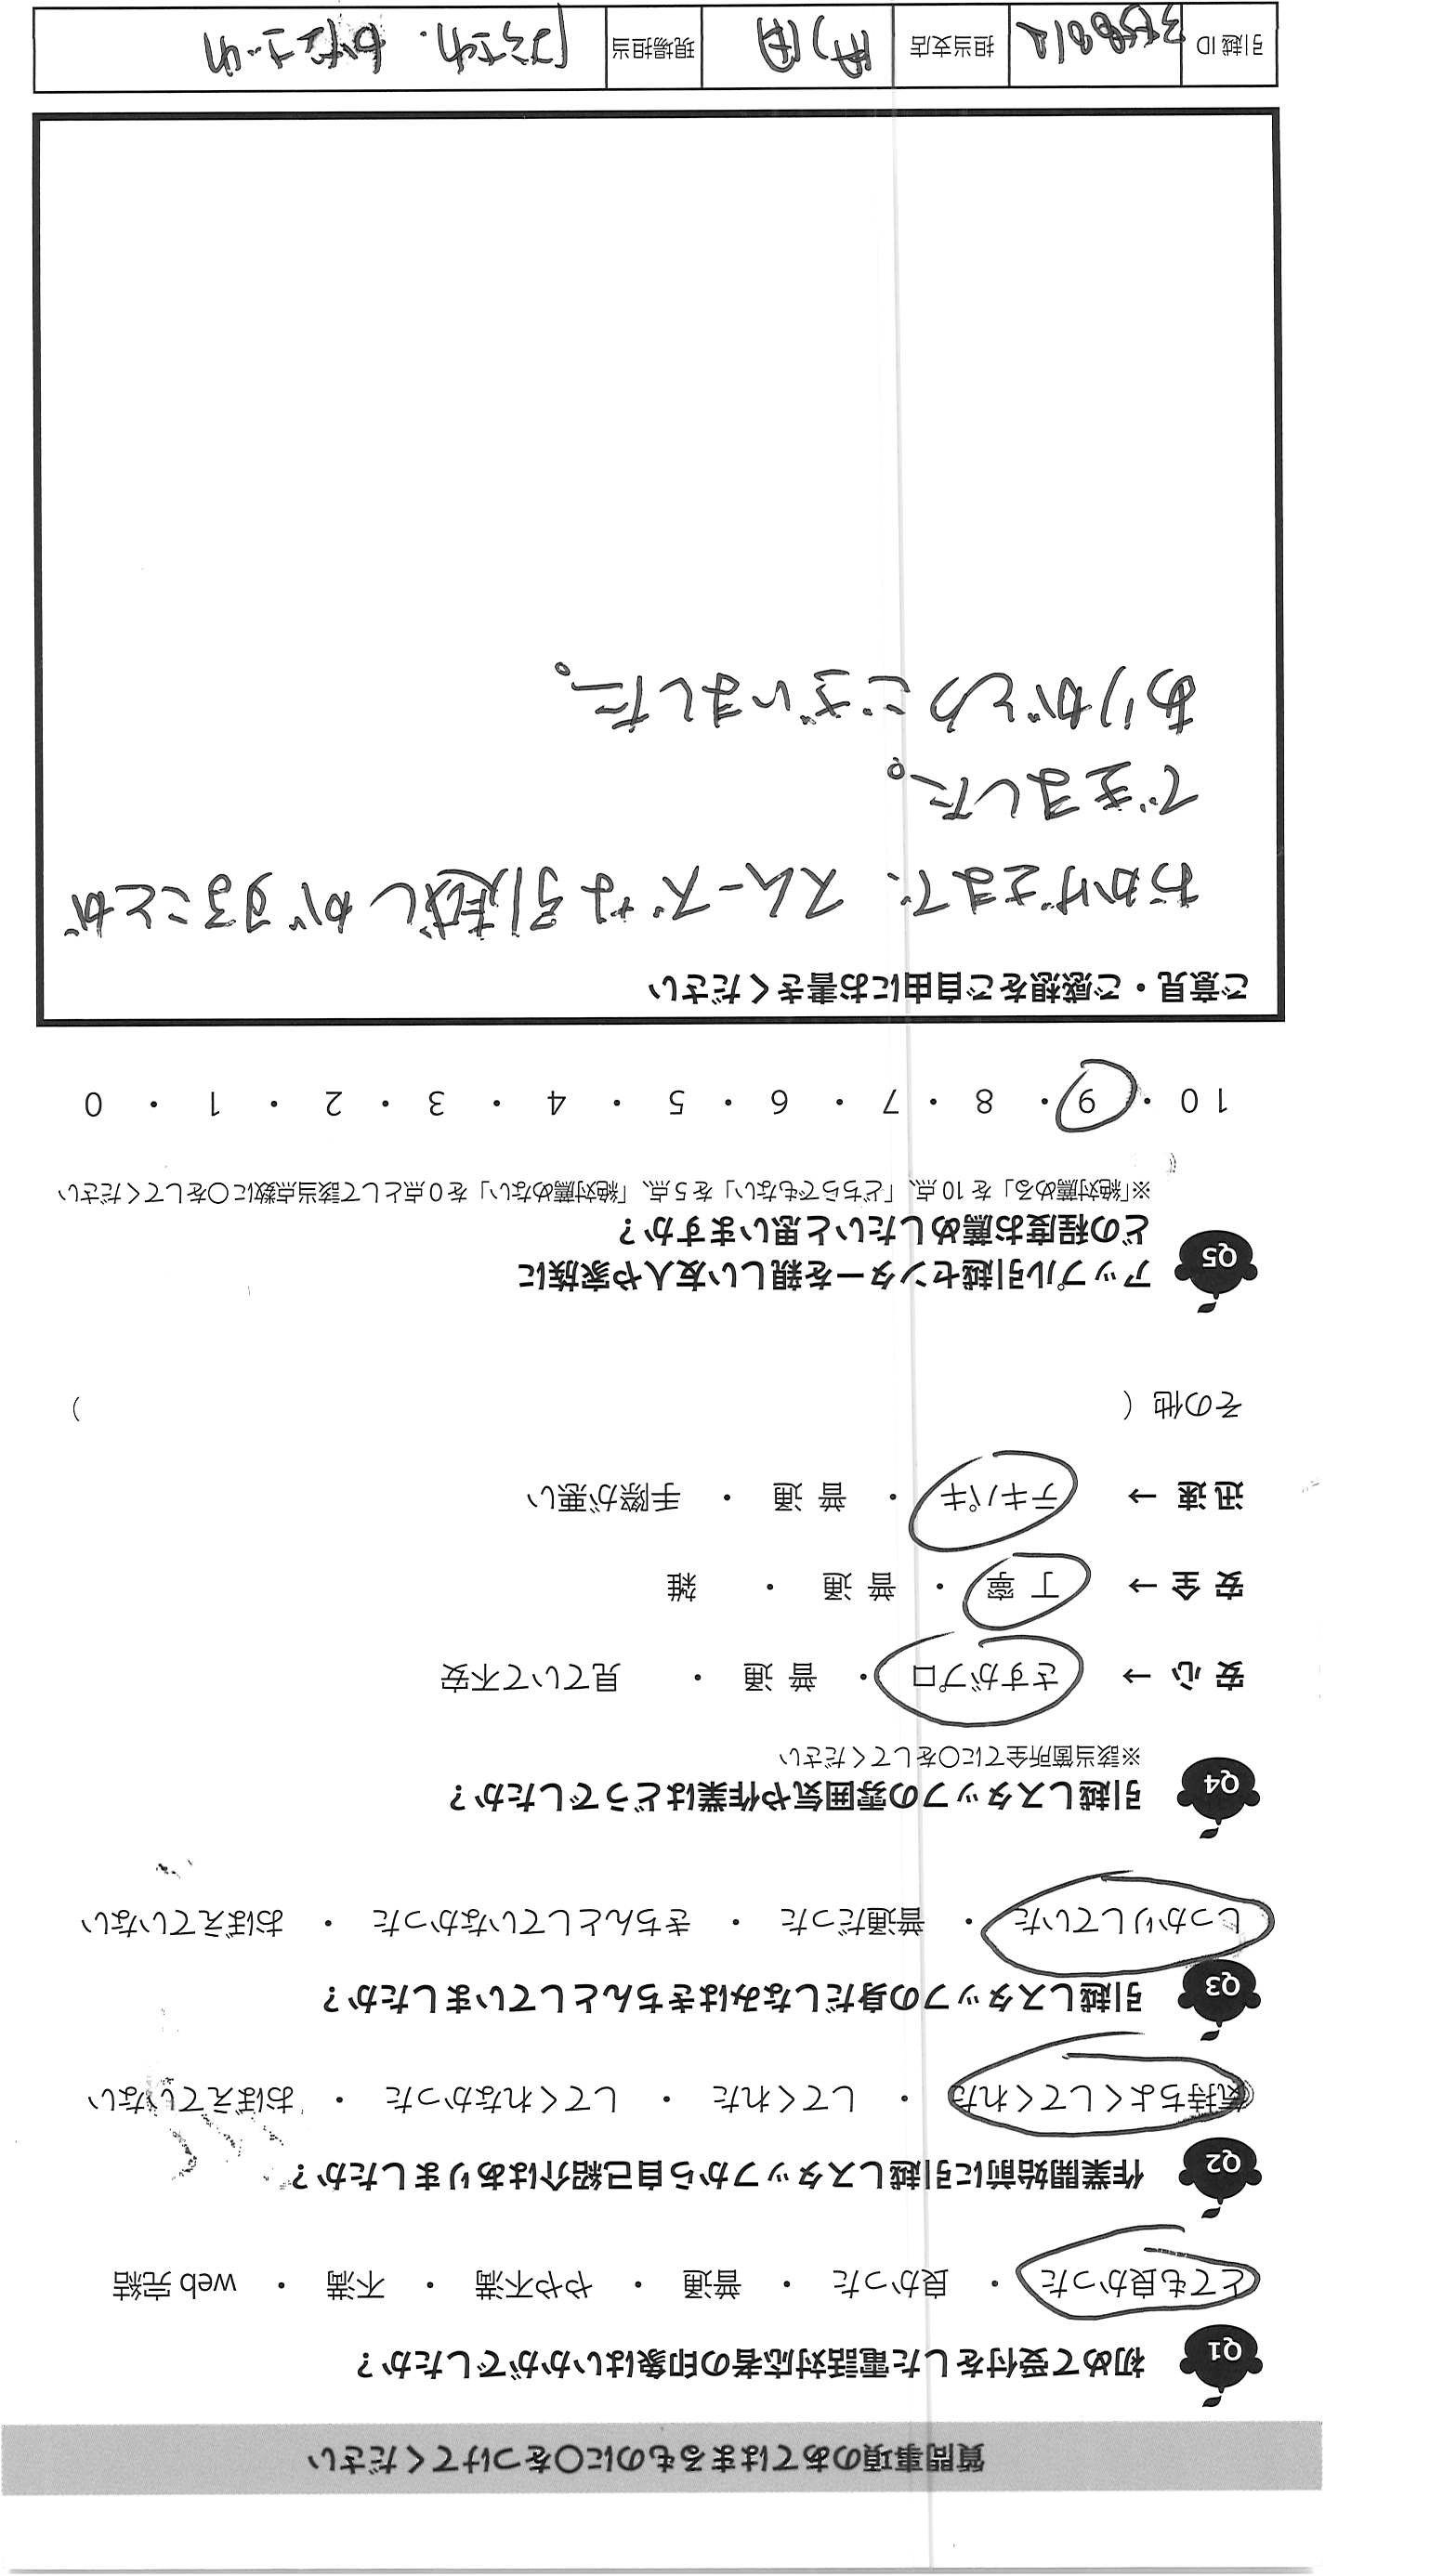 質問事項のあてはまるものに〇をつけてください
Q1 初めて受付をした電話対応者の印象はいかがでしたか？
とても良かった ・ 良かった ・ 普通 ・ やや不満 ・ 不満 ・ web 完結
Q2 作業開始前に引越しスタッフから自己紹介はありましたか？
気持ちよくしてくれた ・ してくれた ・ してくれなかった ・ おぼえていない
Q3 引越しスタッフの身だしなみはきちんとしていましたか？
しっかりしていた ・ 普通だった ・ きちんとしていなかった ・ おぼえていない
Q4 引越しスタッフの雰囲気や作業はどうでしたか？
※該当箇所全てに〇をしてください
安 心 → さすがプロ ・ 普 通 ・ 見ていて不安
安 全 → 丁 寧 ・ 普 通 ・ 雑
迅 速 → テキパキ ・ 普 通 ・ 手際が悪い
その他 ( )
Q5 アップル引越センターを親しい友人や家族に
どの程度お薦めしたいと思いますか？
※「絶対薦める」を10点、「どちらでもない」を5点、「絶対薦めない」を0点として該当点数に〇をしてください
10 ・ 9 ・ 8 ・ 7 ・ 6 ・ 5 ・ 4 ・ 3 ・ 2 ・ 1 ・ 0
ご意見・ご感想をご自由にお書きください
おかげさまで、スムーズな引越しがすることが
できました。
ありがとうございました。
引越ID 担当支店 現場担当